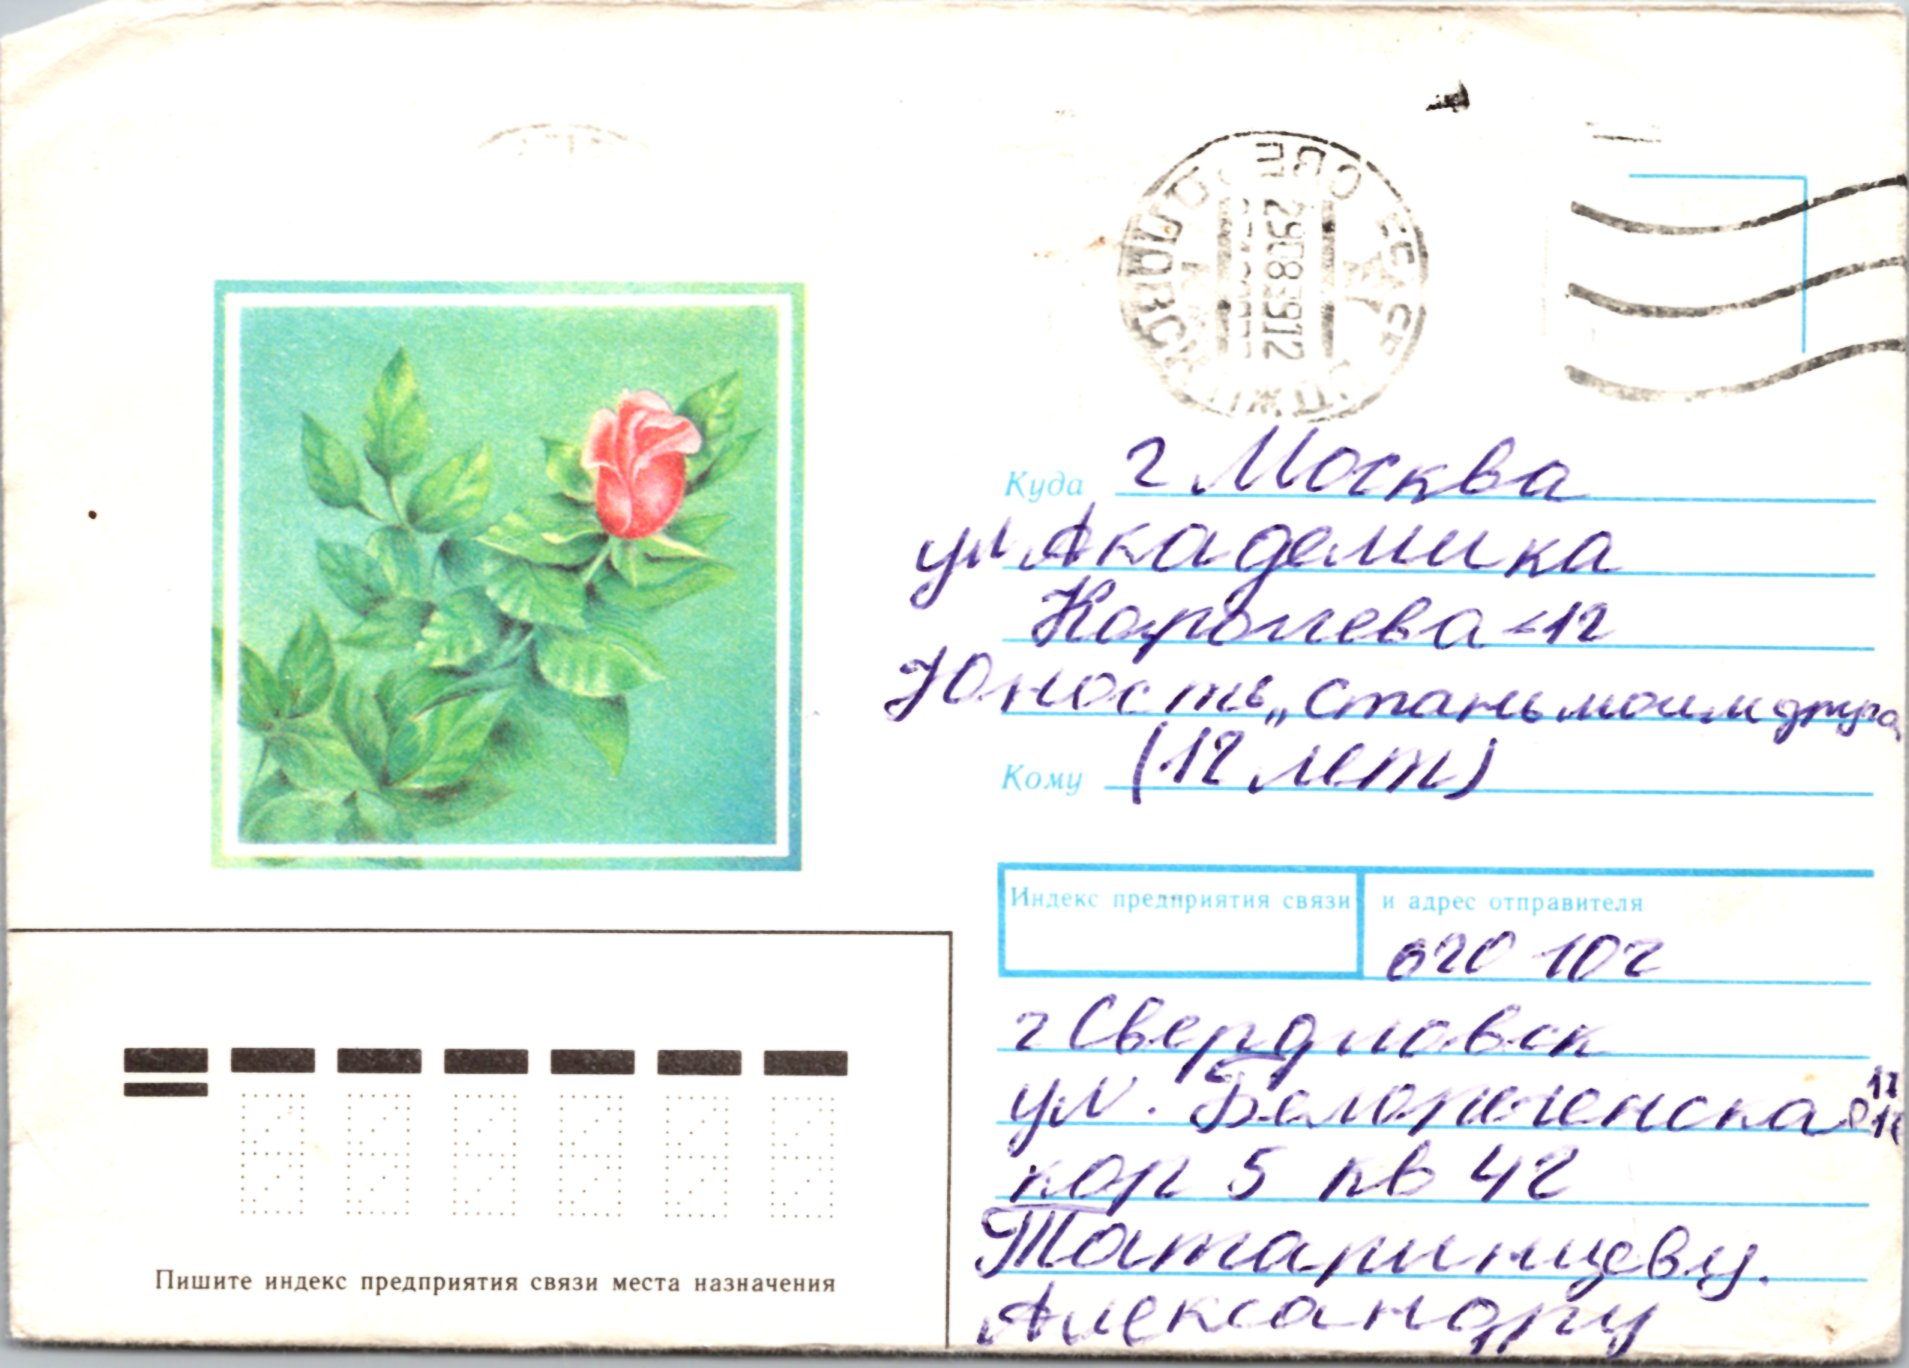 СВЕРДЛОВСК
290891 12
Куда г Москва
ул Академика
Королева-12
Юность „Стань моим друго
Кому (12 лет)
Индекс предприятия связи и адрес отправителя
620 102
г Свердловск
17
ул. Белореченская
кор 5 кв 42
Татаринцеву.
Александру
Пишите индекс предприятия связи места назначения